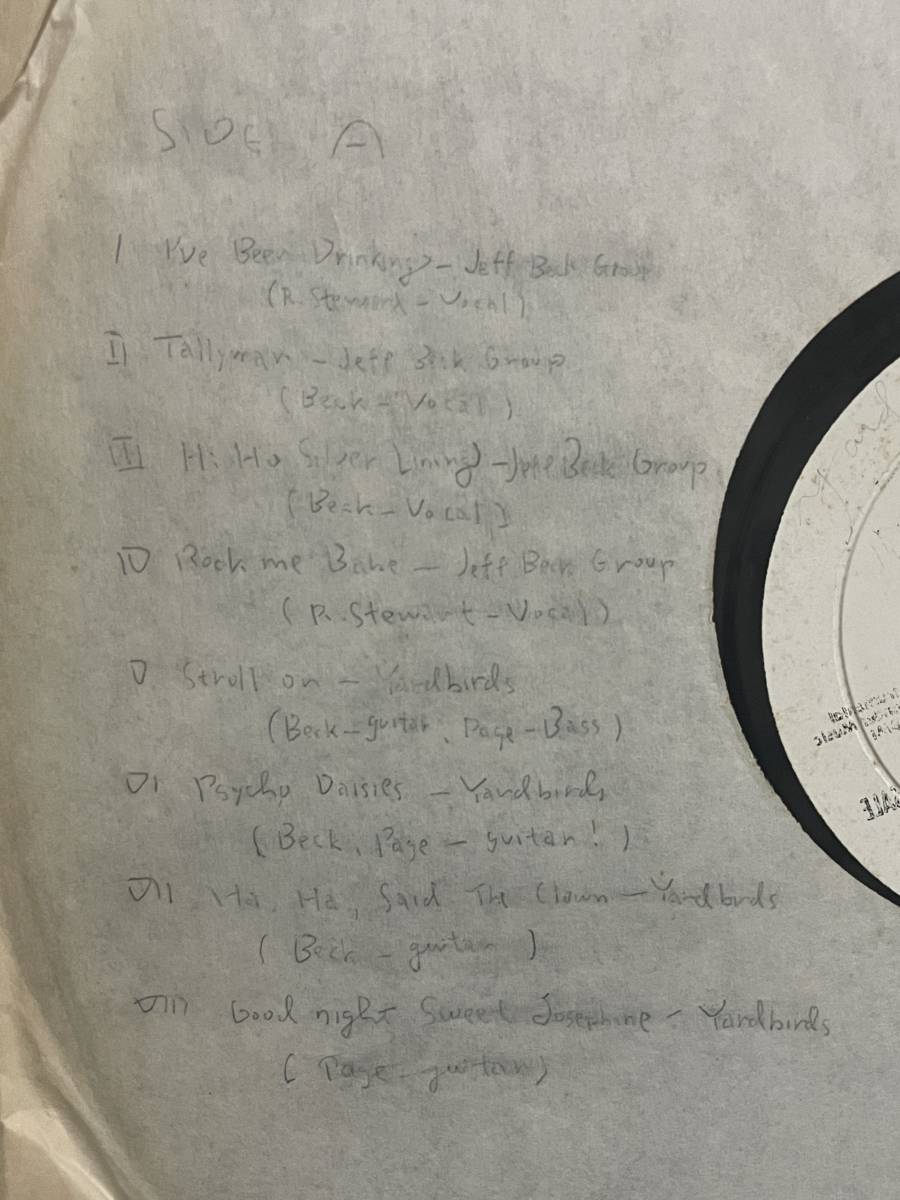 SIDE A
I I've Been Drinking - Jeff Beck Group
(R. Stewart - Vocal)
II Tallyman - Jeff Beck Group
(Beck - Vocal)
III Hi Ho Silver Lining - Jeff Beck Group
(Beck - Vocal)
IV Rock me Babe - Jeff Beck Group
(R. Stewart - Vocal)
V Stroll on - Yardbirds
(Beck - guitar, Page - Bass)
VI Psycho Daisies - Yardbirds
(Beck, Page - guitar!)
VII Ha, Ha, Said The Clown - Yardbirds
(Beck - guitar)
VIII Good night Sweet Josephine - Yardbirds
(Page - guitar)
and
SALE